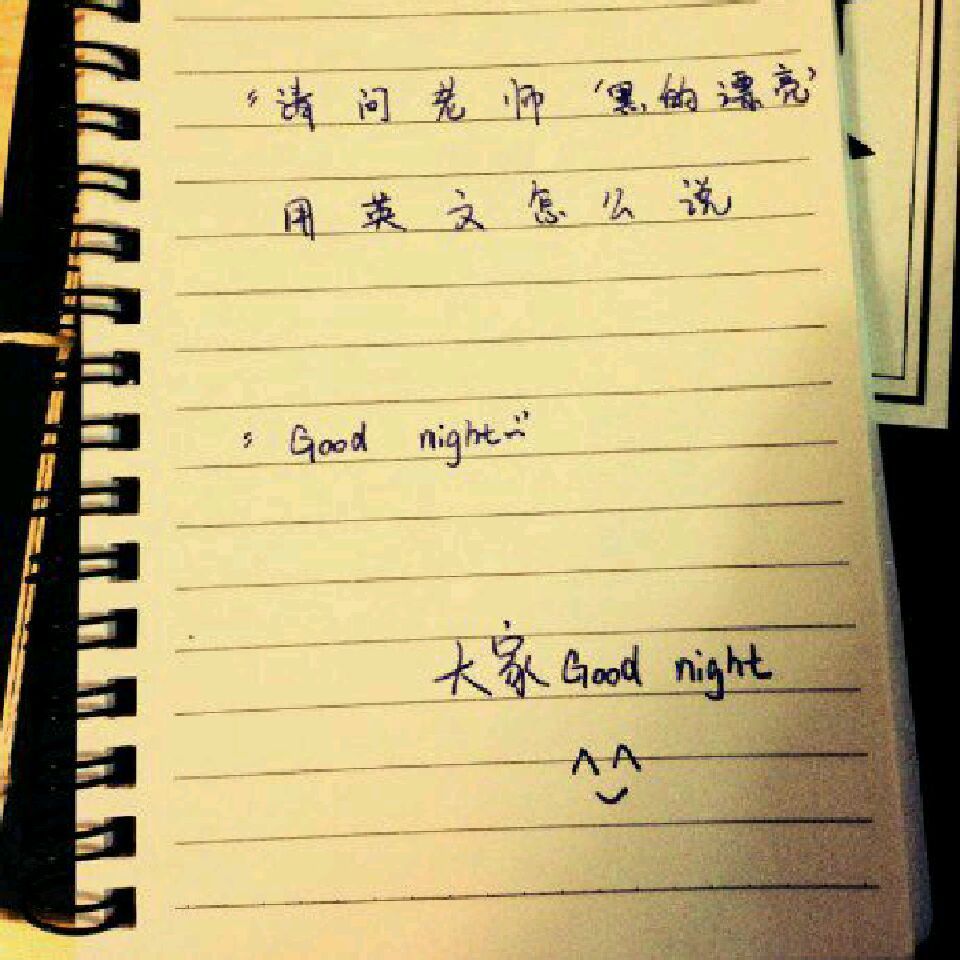 “请问老师‘黑的漂亮’
用英文怎么说
“Good night”
大家Good night